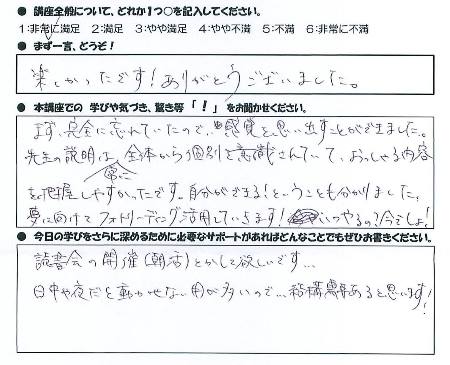 ● 講座全般について、どれか1つ○を記入してください。
1:非常に満足 2:満足 3:やや満足 4:やや不満 5:不満 6:非常に不満
● まず一言、どうぞ！
楽しかったです!ありがとうございました。
● 本講座での 学びや気づき、驚き等「！」をお聞かせください。
まず、完全に忘れていたので、感覚を思い出すことができました。
先生の説明は常に全体から個別を意識されていて、おっしゃる内容
を把握しやすかったです。自分ができる!ということも分かりました。
夢に向けてフォトリーディング活用していきます! いつやるの?今でしょ!
● 今日の学びをさらに深めるために必要なサポートがあればどんなことでもぜひお書きください。
読書会の開催(朝活)とかして欲しいです…
日中や夜だと動かせない用が多いので…結構需要あると思います!